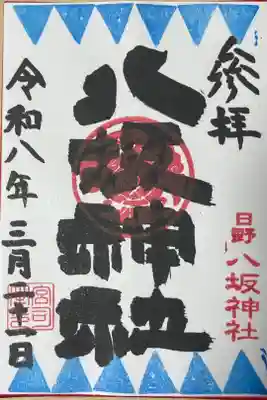 參拜
日野 八坂神社
八坂神社
令和八年 三月二十一日